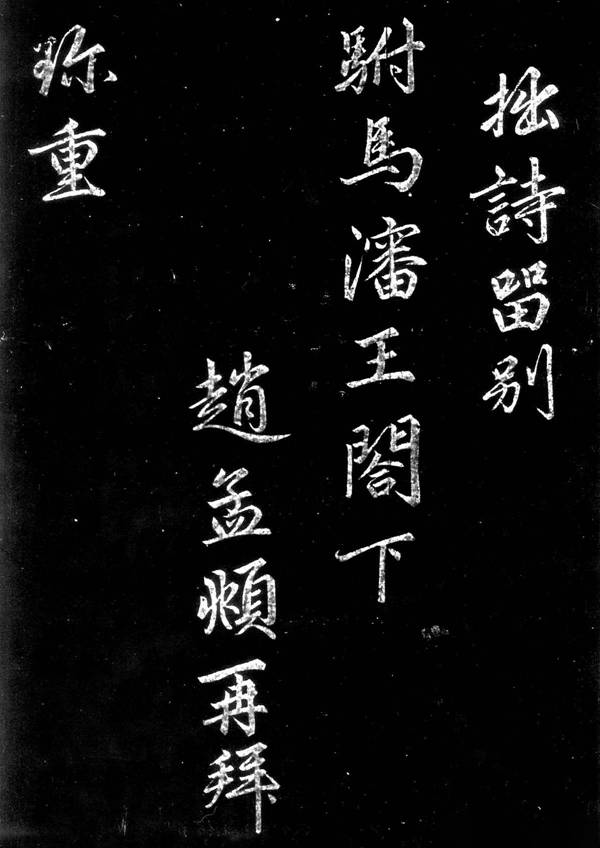 拙詩留别
駙馬瀋王閤下
趙孟頫再拜
珎重